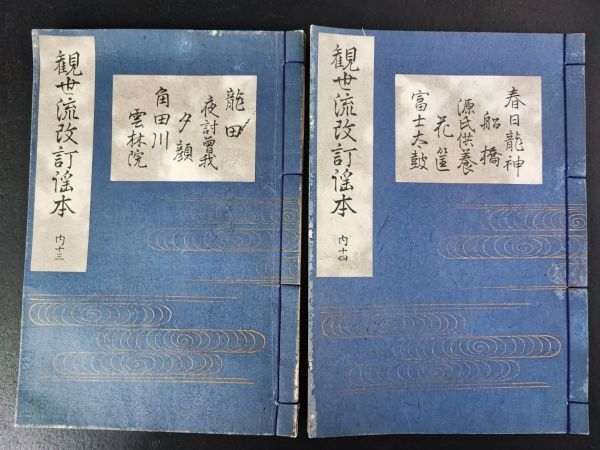 観世流改訂謡本
内十三
龍田
夜討曽我
夕顔
角田川
雲林院
観世流改訂謡本
内十四
春日龍神
船橋
源氏供養
花筐
富士太鼓